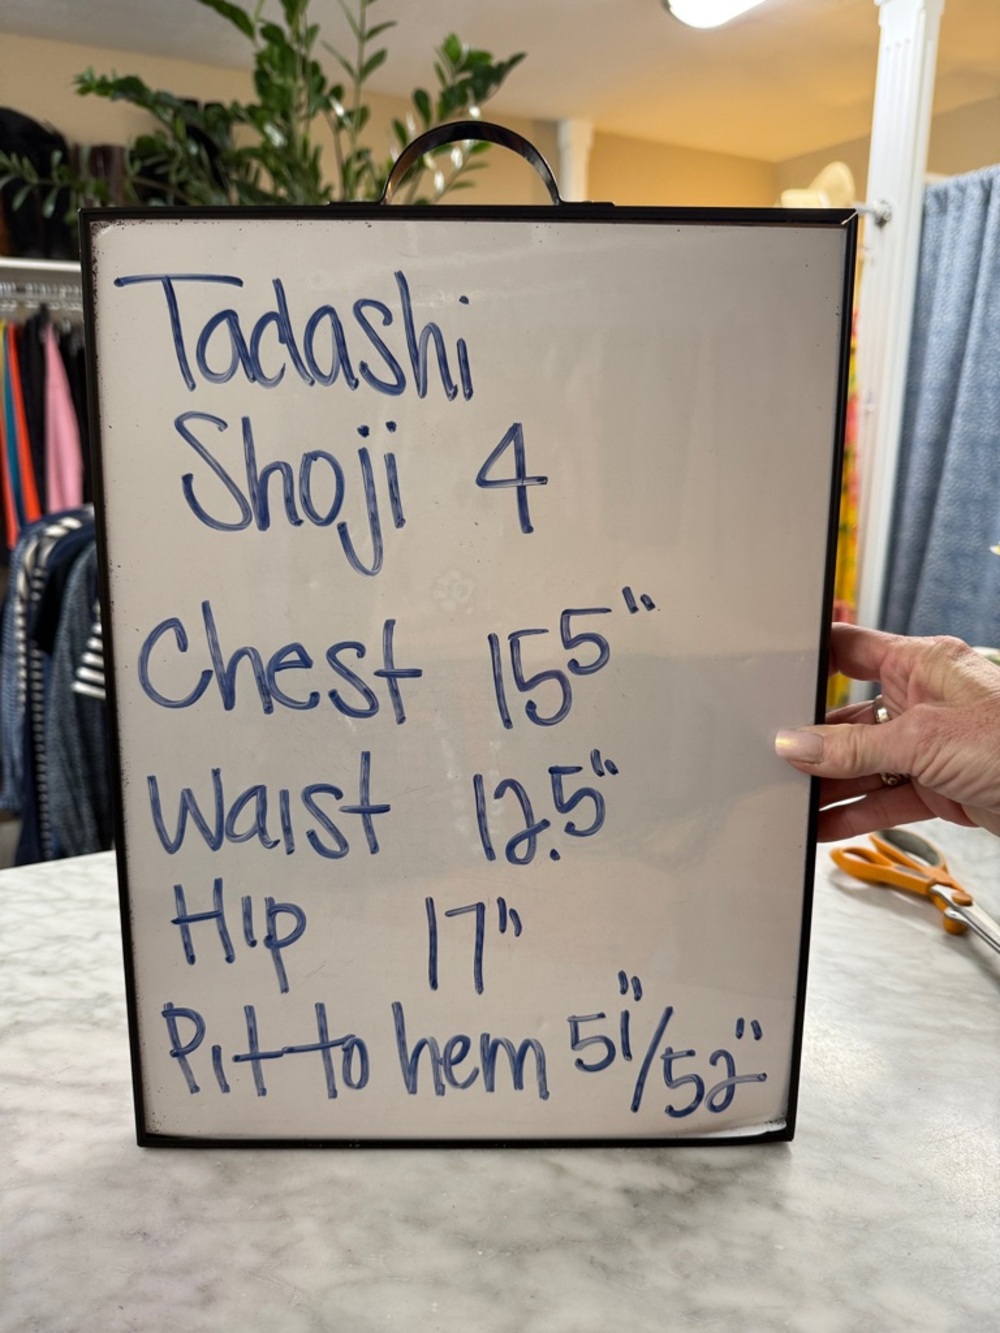 Tadashi
Shoji 4
Chest 15 5"
Waist 12.5"
Hip 17"
Pit to hem 51"/52"